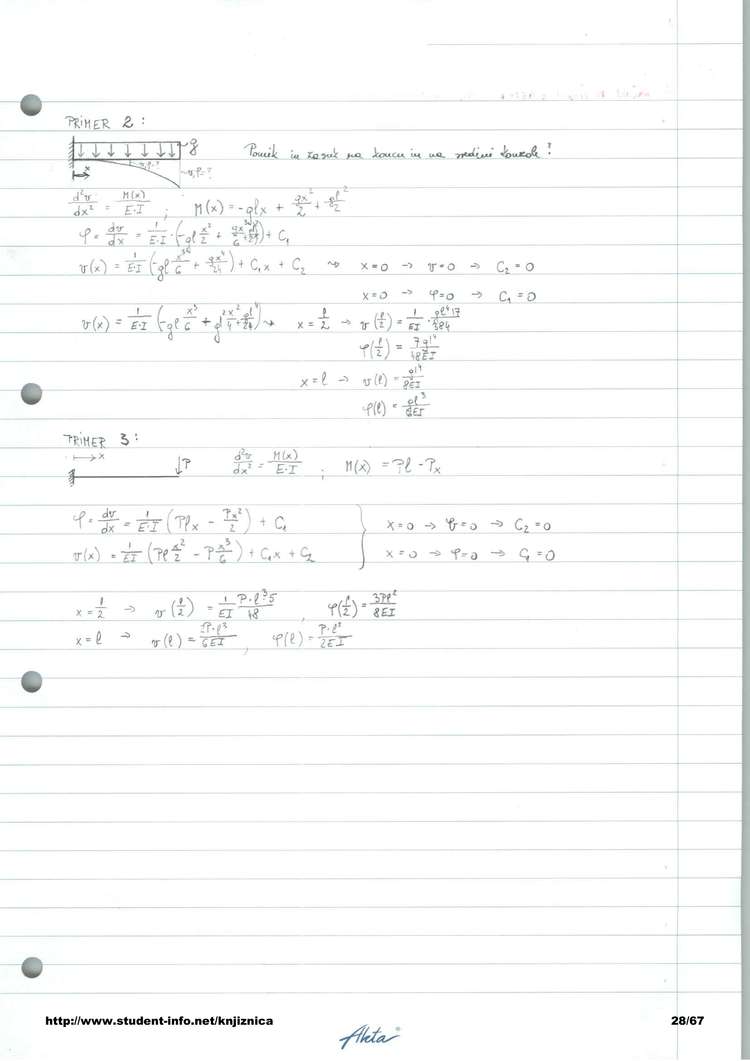 PRIMER 2:
q
Pomik in zasuk na koncu in na sredini konzole?
x v,φ=? v,φ=?
d²v/dx² = M(x)/E·I ; M(x) = -qlx + qx²/2 + ql²/2
φ = dv/dx = 1/E·I · (-ql x²/2 + qx³/6 + ) + C₁
v(x) = 1/E·I (-ql x³/6 + qx⁴/24) + C₁x + C₂ ⇝ x=0 → v=0 → C₂=0
x=0 → φ=0 → C₁=0
v(x) = 1/E·I (-ql x³/6 + ) ⇝ x = l/2 → v(l/2) = 1/EI · ql⁴17/384
φ(l/2) = 7ql³/48EI
x=l → v(l) = ql⁴/8EI
φ(l) = ql³/6EI
PRIMER 3:
x
P d²v/dx² = M(x)/E·I ; M(x) = Pl - Px
φ = dv/dx = 1/E·I (Plx - Px²/2) + C₁ x=0 → v=0 → C₂=0
v(x) = 1/EI (Pl x²/2 - P x³/6) + C₁x + C₂ x=0 → φ=0 → C₁=0
x = l/2 → v(l/2) = 1/EI P·l³·5/48 , φ(l/2) = 3Pl²/8EI
x=l → v(l) = 2P·l³/6EI , φ(l) = P·l²/2EI
http://www.student-info.net/knjiznica 28/67
Akta